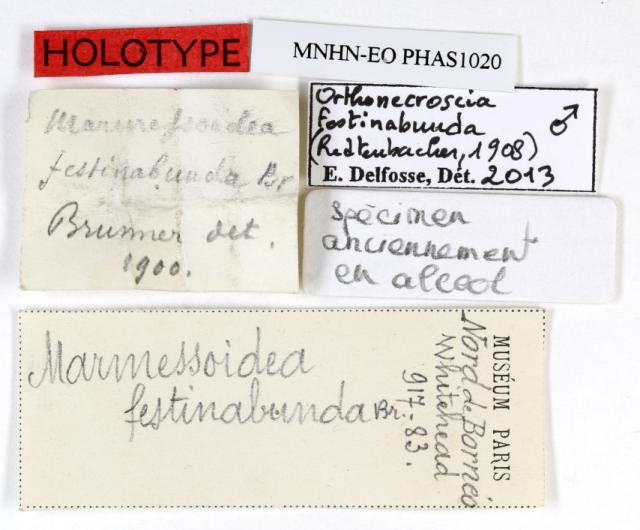 HOLOTYPE
MNHN-EO PHAS1020
Marmessoidea
festinabunda Br
Brunner det.
1900.
Orthonecroscia
festinabunda ♂
(Redtenbacher, 1908)
E. Delfosse, Det. 2013
Spécimen
anciennement
en alcool
Marmessoidea
festinabunda Br.
MUSÉUM PARIS
Nord de Bornéo
Whitehead
917-83.